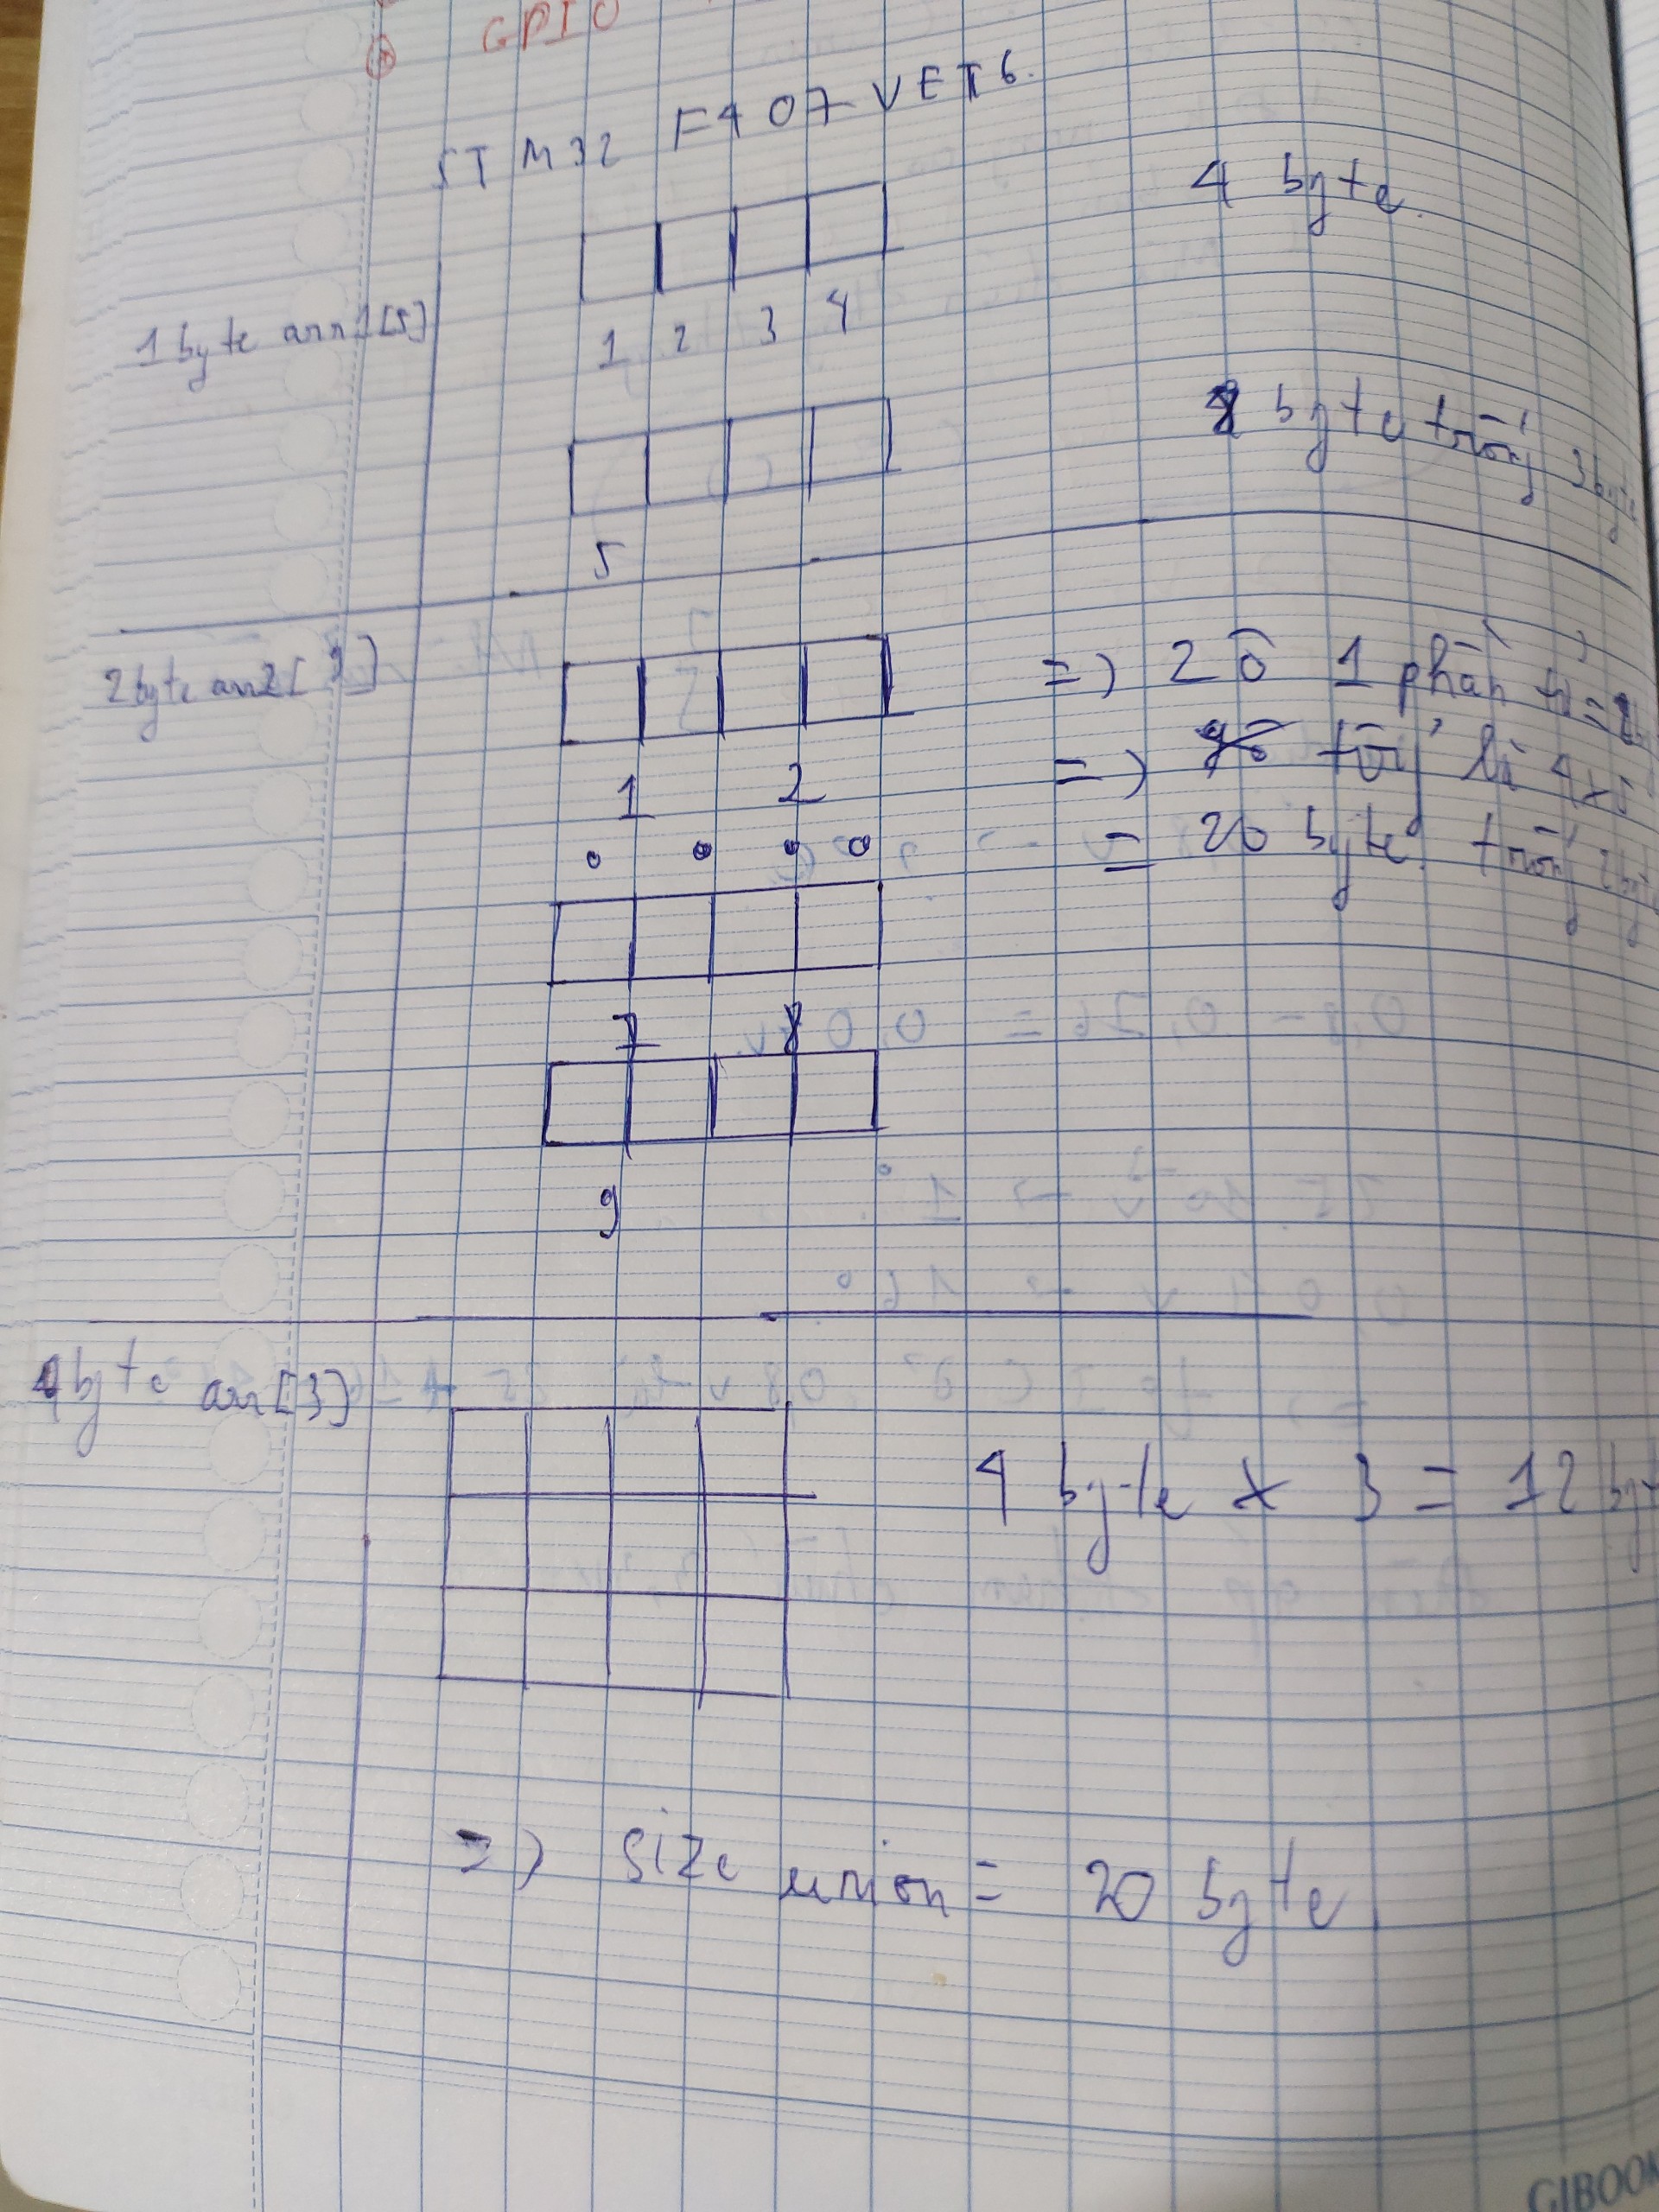 GPIO
STM32 F407 VET6.
4 byte.
1 byte arr1[5]
1 2 3 4
8 byte trống 3 byte
5
2 byte arr2[9]
=> 2 ô 1 phần tử =
1 2
=> tổng là 4x5
= 20 byte. trống 2 byte
7 8
9
4 byte arr[3]
4 byte x 3 = 12 byt
=> size union = 20 byte
GIBOOK